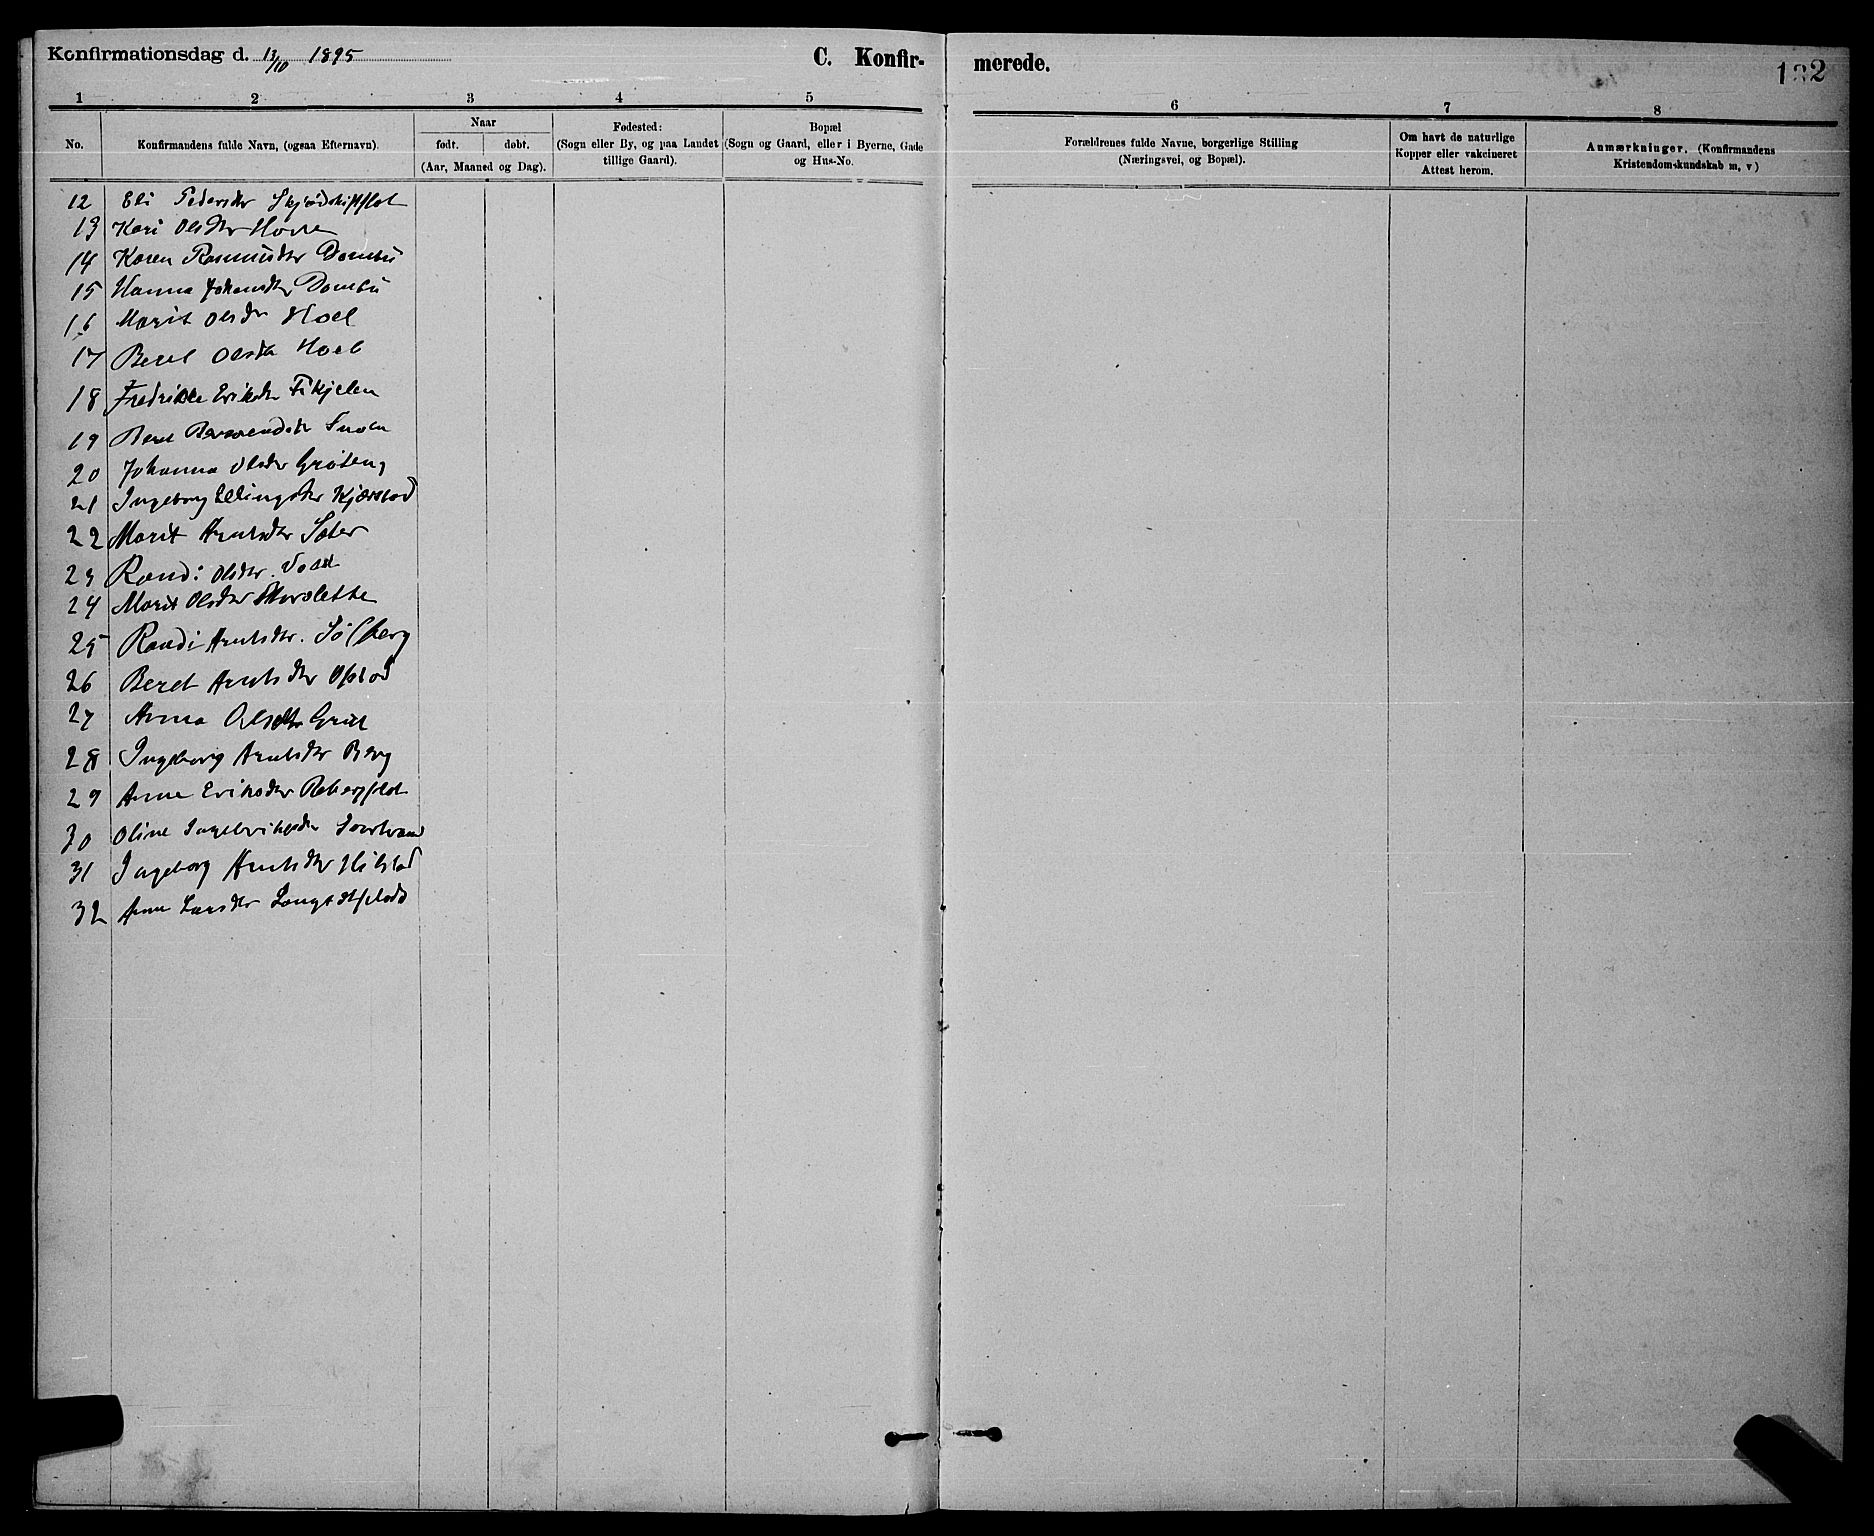 Konfirmationsdag d. 13/10 1895
C. Konfirmerede.
122
1 2 3 4 5 6 7 8
No.
Konfirmandens fulde Navn, (ogsaa Efternavn).
Naar
født. døbt.
(Aar, Maaned og Dag).
Fødested:
(Sogn eller By, og paa Landet
tillige Gaard).
Bopæl
(Sogn og Gaard, eller i Byerne, Gade
og Hus-No.
Forældrenes fulde Navne, borgerlige Stilling
(Næringsvei, og Bopæl).
Om havt de naturlige
Kopper eller vakcineret
Attest herom.
Anmærkninger. (Konfirmandens
Kristendomskundskab m, v)
12 Eli Pedersdtr
13 Kari Olsdtr Hovre
14 Karen Rasmusdtr Dombu
15 Hanna Johansdtr Dombu
16 Marit Olsdtr Hoel
17 Beret Olsdtr Hoel
18 Fredrikke Eriksdtr
19 Beret
20 Johanna Olsdtr Grøteng
21 Ingeborg Ellingsdtr Kjærstad
22 Marit Arntsdtr Sæter
23 Randi Olsdtr.
24 Marit Olsdtr
25 Randi Arntsdtr. Solberg
26 Beret Arntsdtr Opstad
27 Anna Olsdtr
28 Ingeborg Arntsdtr Berg
29 Anne Eriksdtr
30 Oline Ingebrigtsdtr
31 Ingeborg Arntsdtr Hilstad
32 Anne Larsdtr